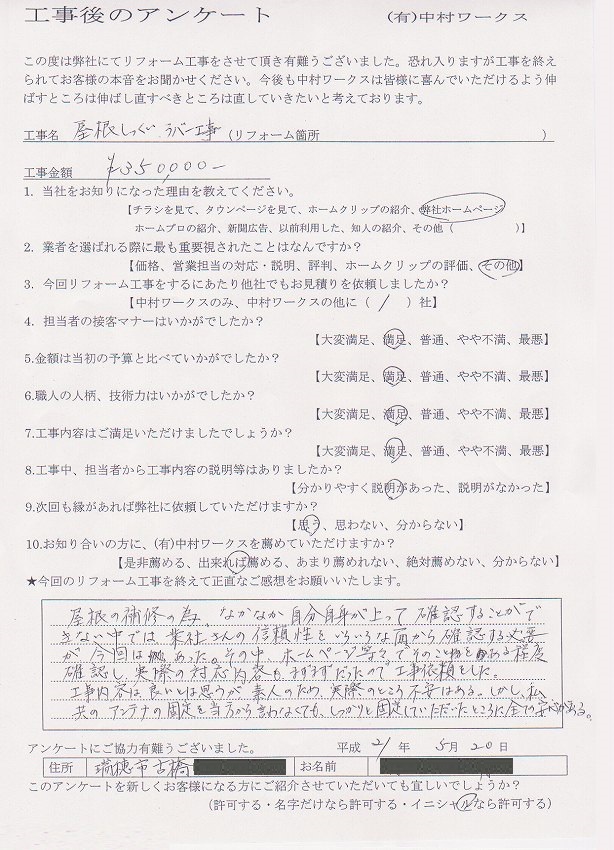 工事後のアンケート (有)中村ワークス
この度は弊社にてリフォーム工事をさせて頂き有難うございました。恐れ入りますが工事を終え
られてお客様の本音をお聞かせください。今後も中村ワークスは皆様に喜んでいただけるよう伸
ばすところは伸ばし直すべきところは直していきたいと考えております。
工事名 屋根しっくいラバー工事 (リフォーム箇所 )
工事金額 ¥350,000-
1. 当社をお知りになった理由を教えてください。
【チラシを見て、タウンページを見て、ホームクリップの紹介、弊社ホームページ
ホームプロの紹介、新聞広告、以前利用した、知人の紹介、その他 ( )】
2. 業者を選ばれる際に最も重要視されたことはなんですか？
【価格、営業担当の対応・説明、評判、ホームクリップの評価、その他】
3. 今回リフォーム工事をするにあたり他社でもお見積りを依頼しましたか？
【中村ワークスのみ、中村ワークスの他に ( / ) 社】
4. 担当者の接客マナーはいかがでしたか？
【大変満足、満足、普通、やや不満、最悪】
5.金額は当初の予算と比べていかがでしたか？
【大変満足、満足、普通、やや不満、最悪】
6.職人の人柄、技術力はいかがでしたか？
【大変満足、満足、普通、やや不満、最悪】
7.工事内容はご満足いただけましたでしょうか？
【大変満足、満足、普通、やや不満、最悪】
8.工事中、担当者から工事内容の説明等はありましたか？
【分かりやすく説明があった、説明がなかった】
9.次回も縁があれば弊社に依頼していただけますか？
【思う、思わない、分からない】
10.お知り合いの方に、(有)中村ワークスを薦めていただけますか？
【是非薦める、出来れば薦める、あまり薦めれない、絶対薦めない、分からない】
★今回のリフォーム工事を終えて正直なご感想をお願いいたします。
屋根の補修の為、なかなか自分自身が上って確認することがで
きない中では業社さんの信頼性をいろいろな面から確認する必要
が今回はあった。その中、ホームページ等々でそのことをある程度
確認し、実際の対応内容もまずまずだったので工事依頼をした。
工事内容は良いとは思うが素人のため、実際のところ不安はある。しかし、私
共のアンテナの固定を当方から言わなくても、しっかりと固定していただいたところに全ての安心がある。
アンケートにご協力有難うございました。 平成 21 年 5月 20 日
住所 瑞穂市古橋 お名前
このアンケートを新しくお客様になる方にご紹介させていただいても宜しいでしょうか？
(許可する・名字だけなら許可する・イニシャルなら許可する)